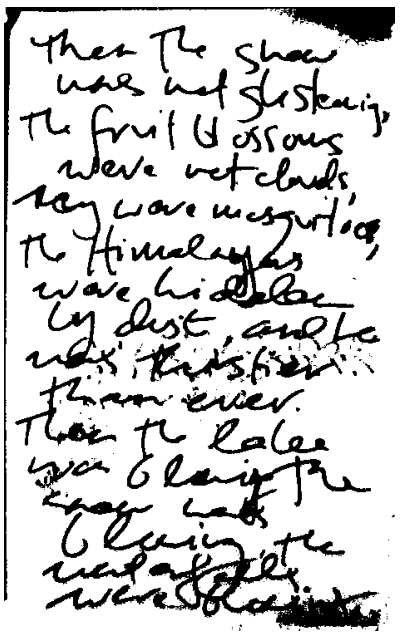 Then the snow
was not glistening,
the fruit blossoms
were not clouds,
they were mosquitoes,
the Himalayas
were hidden
by dust, and he
was thirstier
than ever.
Then the lake
was blowing the
snow was
blowing, the
were